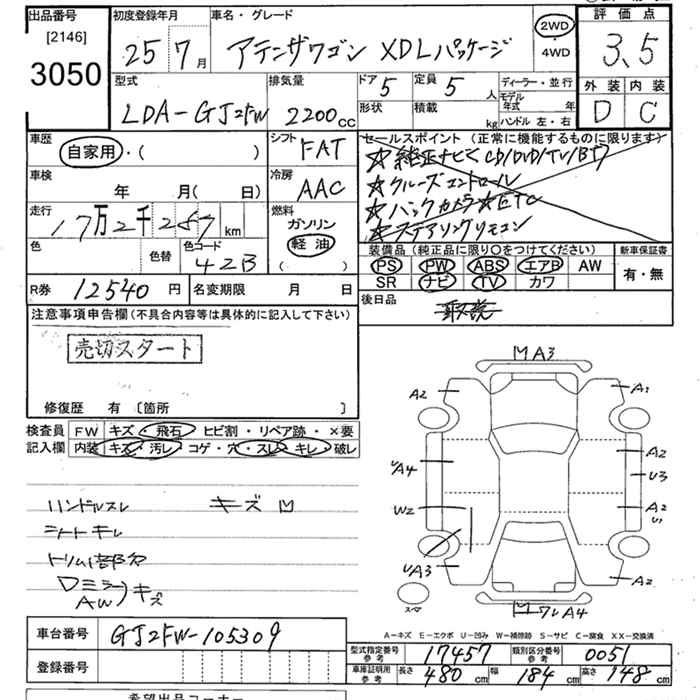 出品番号 初度登録年月 車名・グレード 評価点
[2146] 3050 25 7月 アテンザワゴン XDLパッケージ 2WD ・ 4WD 3.5
外装 内装
D C
型式 排気量 ドア 5 定員 5 人 ディーラー・並行
LDA-GJ2FW 2200cc 形状 積載 kg モデル年式 年
ハンドル 左・右
車歴 自家用・( ) シフト FAT セールスポイント(正常に機能するものに限ります)
☆純正ナビ CD/DVD/TV/BT
車検 年 月( 日) 冷房 AAC ☆クルーズコントロール
☆バックカメラ☆ETC
走行 17万2千287km 燃料 ガソリン ☆ステアリングリモコン
軽油
( )
色 色替 色コード 42B 装備品(純正品に限り○をつけてください) 新車保証書
PS PW ABS エアB AW 有・無
SR ナビ TV カワ
R券 12540円 名変期限 月 日 後日品 取説
注意事項申告欄(不具合内容等は具体的に記入して下さい)
売切スタート
修復歴 有 [箇所 ]
検査員 FW キズ・飛石・ヒビ割・リペア跡・×要
記入欄 内装 キズ・汚レ・コゲ・穴・スレ・キレ・破レ
ハンドルスレ キズ
シートキレ
トリム部分
Dミラーキズ
AW
MA3
A2 A1
A4 A2
U3
W2 A2
U1
UA3 A2
スペア
ワレA4
A-キズ E-エクボ U-凹み W-補修跡 S-サビ C-腐食 XX-交換済
車台番号 GJ2FW-105309
型式指定番号 参考 17457 類別区分番号 参考 0051
登録番号 車庫証明用 参考 長さ 480cm 幅 184cm 高さ 148cm
希望出品コーナー